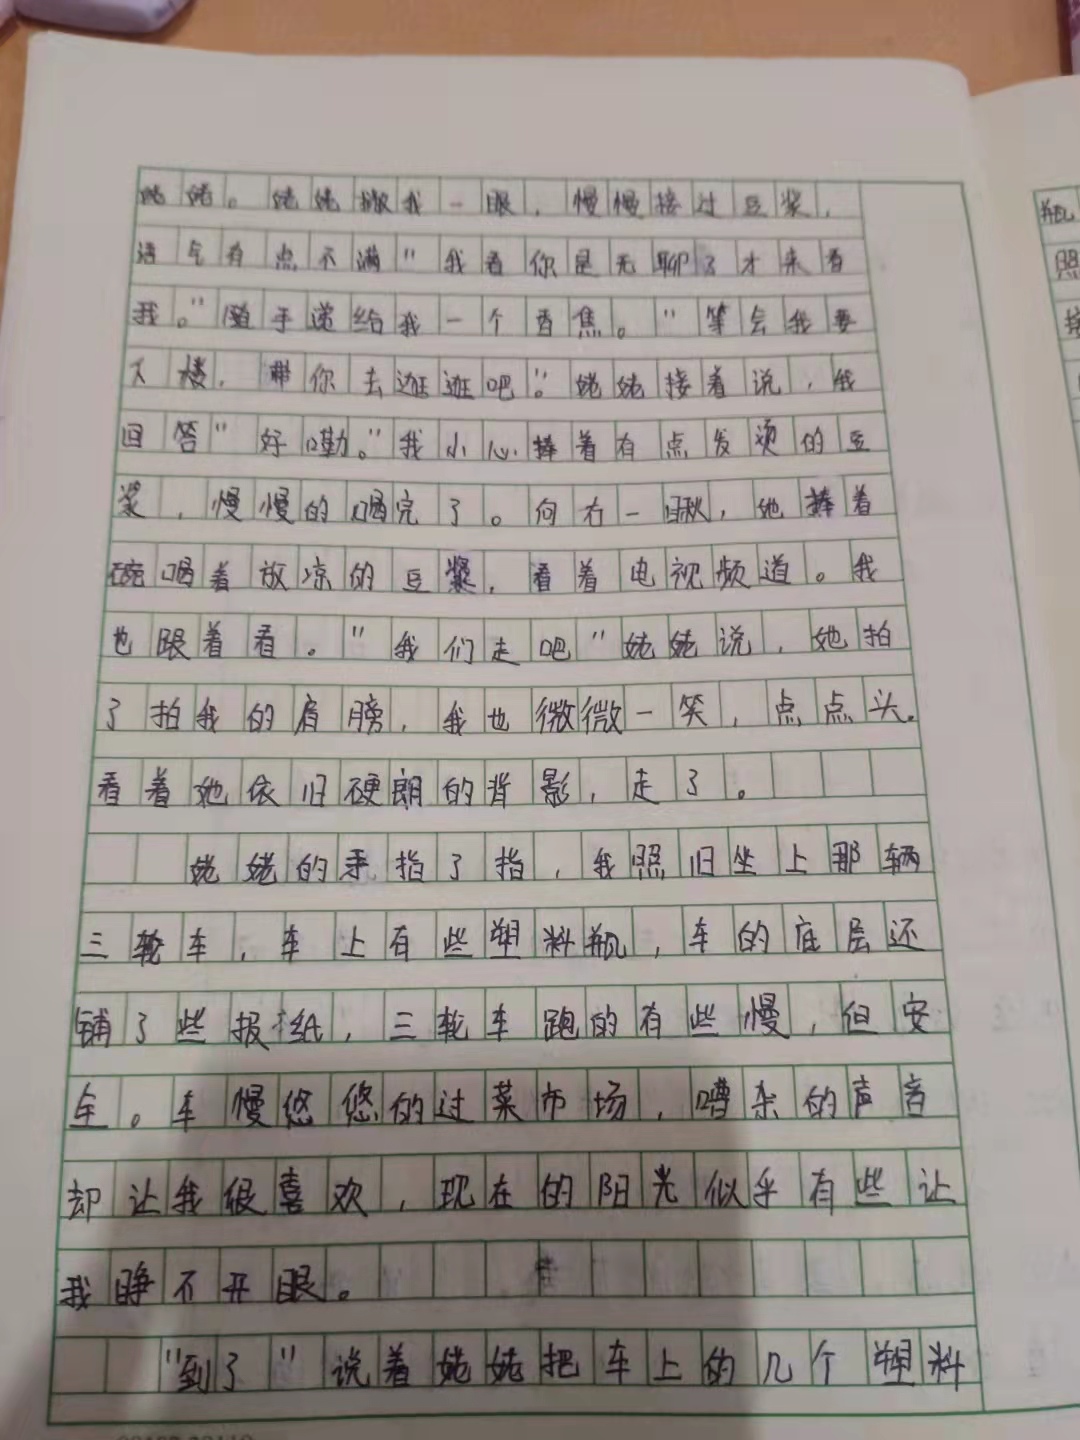 姥姥。姥姥撇我一眼，慢慢接过豆浆，
语气有点不满"我看你是无聊了才来看
我。"随手递给我一个香焦。"等会我要
下楼，带你去逛逛吧。"姥姥接着说，我
回答"好嘞。"我小心捧着有点发烫的豆
浆，慢慢的喝完了。向右一瞅，她捧着
碗喝着放凉的豆浆，看着电视频道。我
也跟着看。"我们走吧"姥姥说，她拍
了拍我的肩膀，我也微微一笑，点点头。
看着她依旧硬朗的背影，走了。
姥姥的手指了指，我照旧坐上那辆
三轮车，车上有些塑料瓶，车的底层还
铺了些报纸，三轮车跑的有些慢，但安
全。车慢悠悠的过菜市场，嘈杂的声音
却让我很喜欢，现在的阳光似乎有些让
我睁不开眼。
"到了"说着姥姥把车上的几个塑料
瓶
照